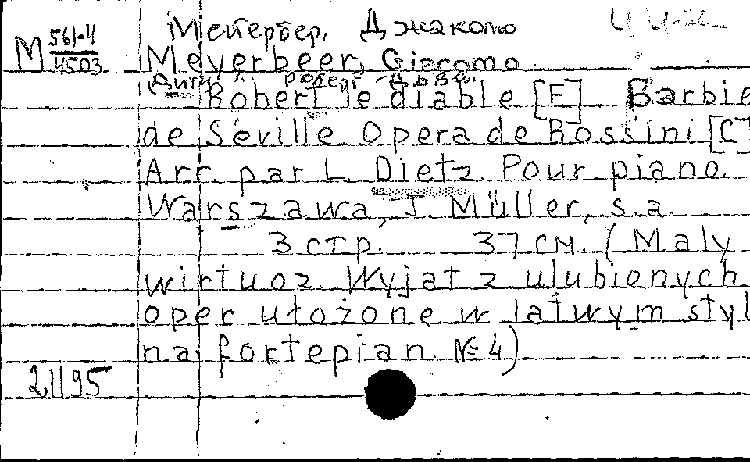 Мейербер, Джакомо
M 561-4/4503
Meyerbeer, Giacomo
Robert le diable [E] Barbie
de Séville Opera de Rossini [C]
Arr. par L. Dietz. Pour piano.
Warszawa, J. Müller, s.a.
3 стр. 37 см. (Maly
wirtuoz. Wyjat z ulubionych
oper ułożone w łatwym styl
na fortepian № 4)
21195